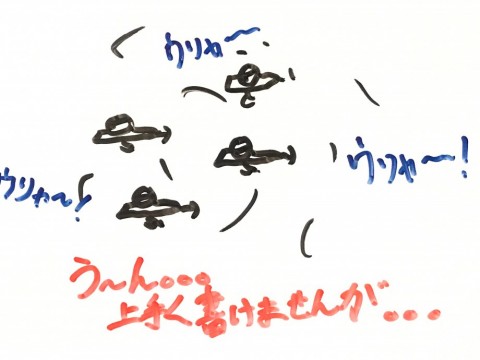 ウリャ〜
ウリャ〜!
ウリャ〜!
う〜ん。。。
上手く書けませんが...